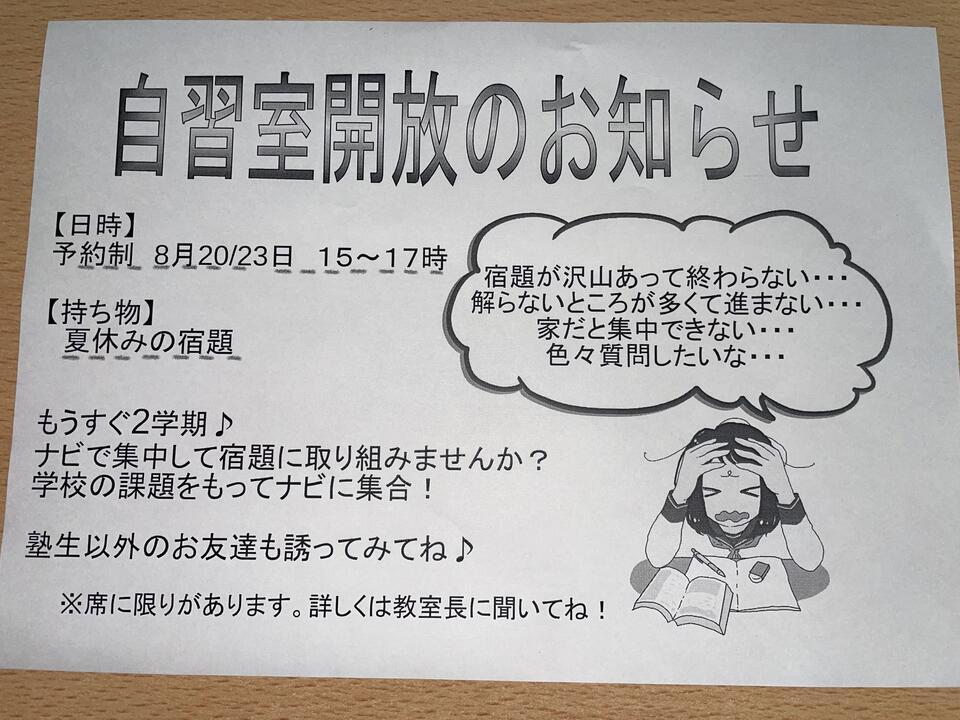 自習室開放のお知らせ
【日時】
予約制 8月20/23日 15～17時
【持ち物】
夏休みの宿題
宿題が沢山あって終わらない・・・
解らないところが多くて進まない・・・
家だと集中できない・・・
色々質問したいな・・・
もうすぐ2学期♪
ナビで集中して宿題に取り組みませんか？
学校の課題をもってナビに集合！
塾生以外のお友達も誘ってみてね♪
※席に限りがあります。詳しくは教室長に聞いてね！